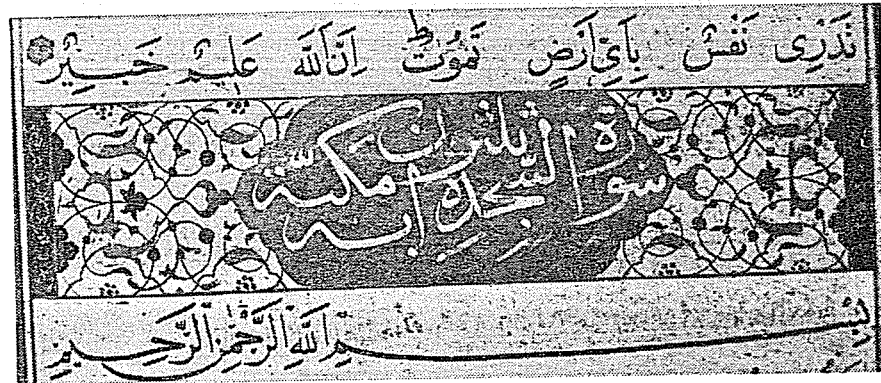 تَدْرِى نَفْسٌ بِاَىِّ اَرْضٍ تَمُوتُ اِنَّ اللّٰهَ عَلِيمٌ خَبِيرٌ
سورة السجدة مكية ثلثون اية
بِسْمِ اللّٰهِ الرَّحْمٰنِ الرَّحِيمِ